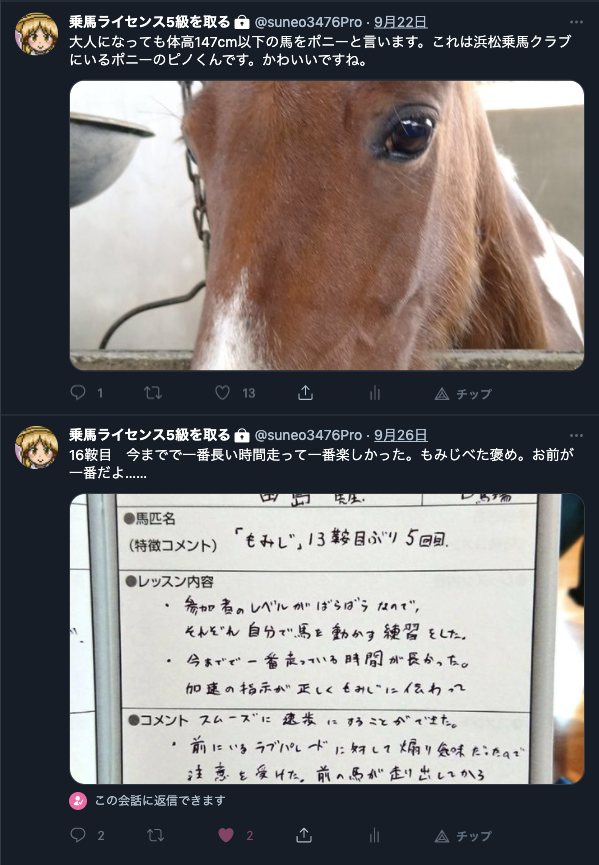 乗馬ライセンス5級を取る @suneo3476Pro · 9月22日
大人になっても体高147cm以下の馬をポニーと言います。これは浜松乗馬クラブ
にいるポニーのピノくんです。かわいいですね。
1 13 チップ
乗馬ライセンス5級を取る @suneo3476Pro · 9月26日
16鞍目　今までで一番長い時間走って一番楽しかった。もみじべた褒め。お前が
一番だよ……
●馬匹名
(特徴コメント) 「もみじ」、13鞍目ぶり5回目.
●レッスン内容
・参加者のレベルがばらばらなので,
それぞれ自分で馬を動かす練習をした。
・今までで一番走っている時間が長かった。
加速の指示が正しくもみじに伝わって
●コメント スムーズに速歩にすることができた。
・前にいるラブパレードに対して煽り気味だったので
注意を受けた。前の馬が走り出してから
この会話に返信できます
2 2 チップ